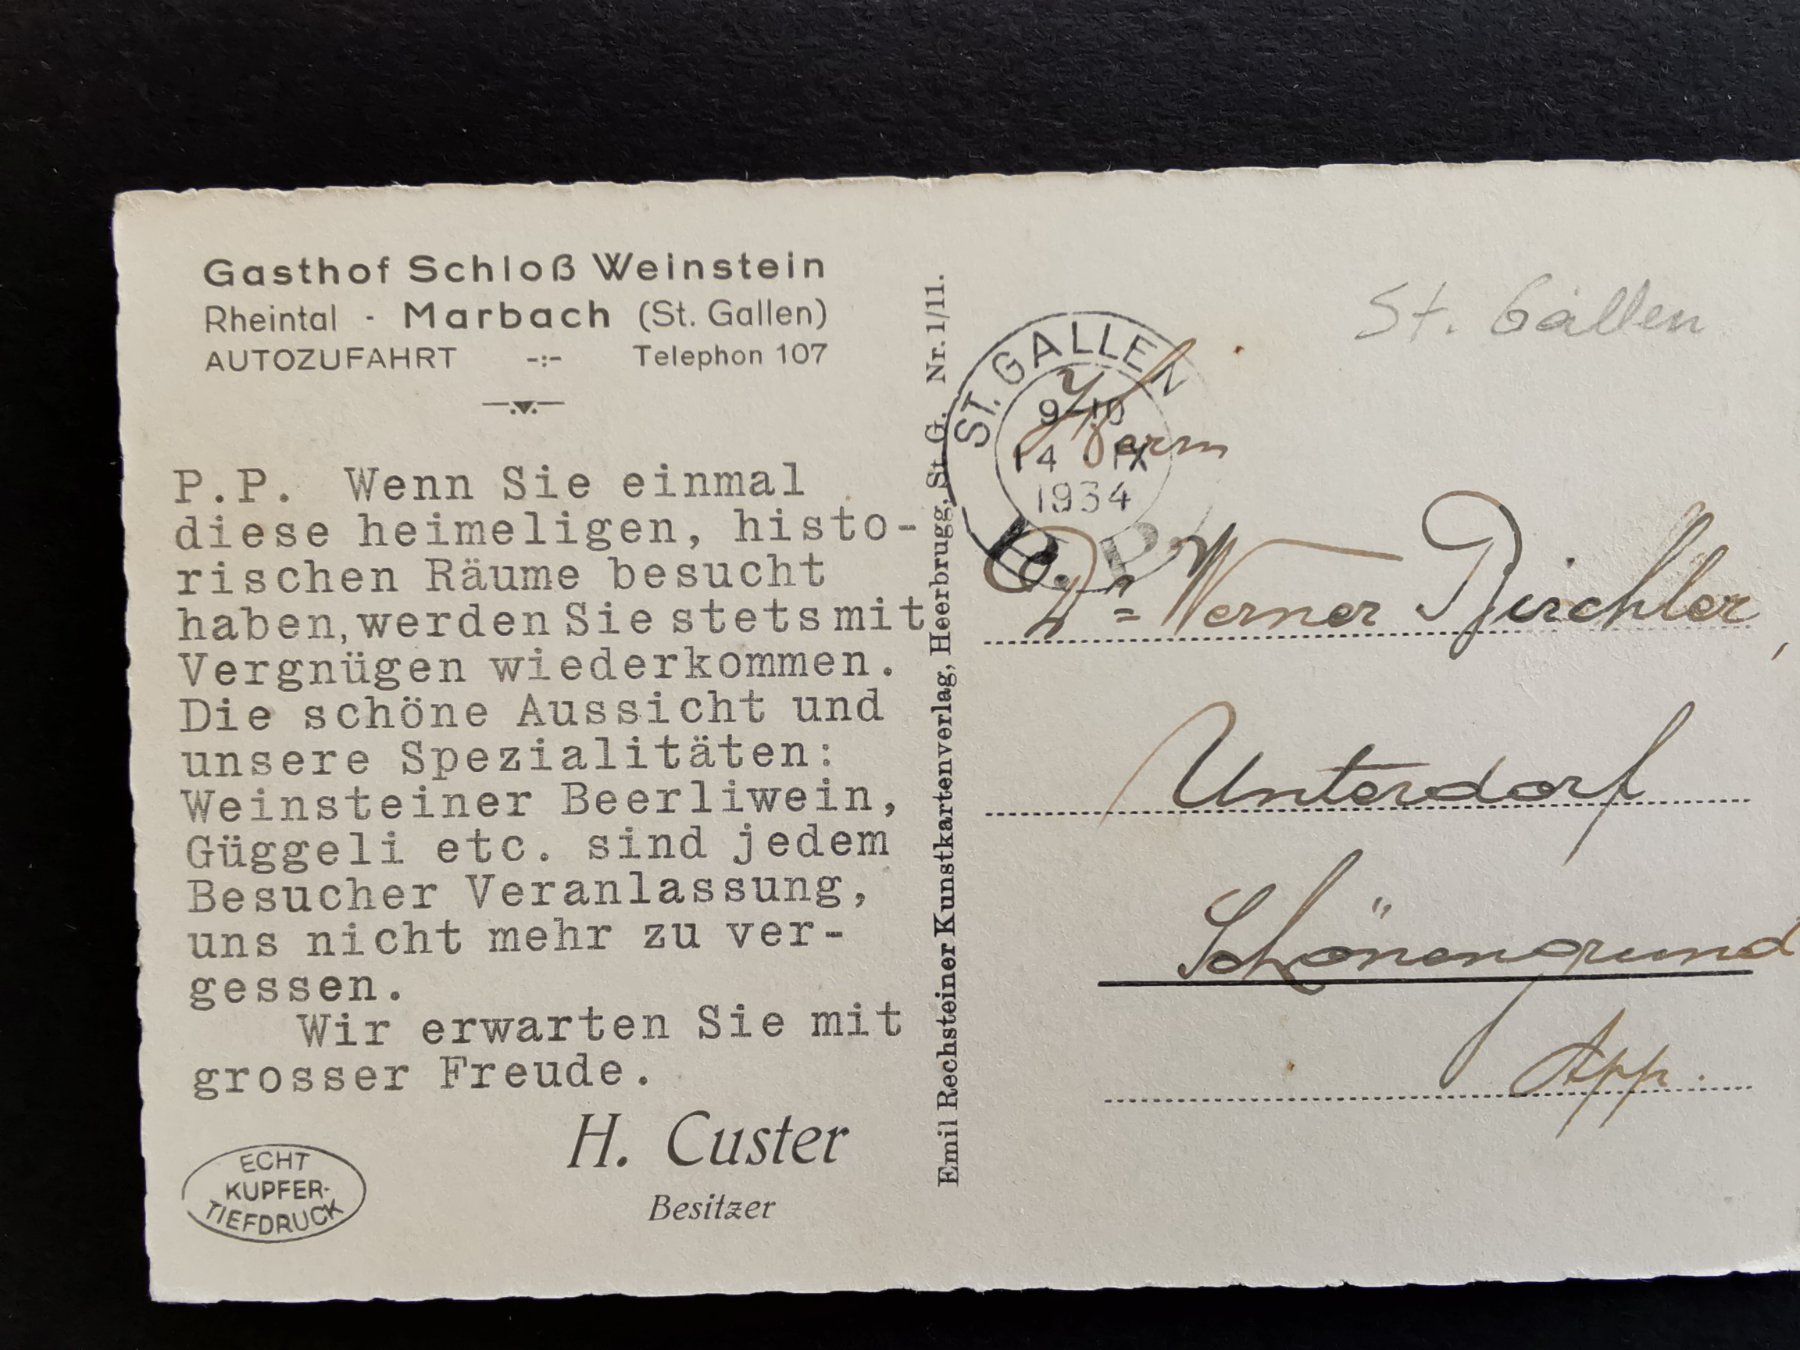 Gasthof Schloß Weinstein
Rheintal - Marbach (St. Gallen)
AUTOZUFAHRT -:- Telephon 107
P.P. Wenn Sie einmal
diese heimeligen, histo-
rischen Räume besucht
haben, werden Sie stets mit
Vergnügen wiederkommen.
Die schöne Aussicht und
unsere Spezialitäten:
Weinsteiner Beerliwein,
Güggeli etc. sind jedem
Besucher Veranlassung,
uns nicht mehr zu ver-
gessen.
Wir erwarten Sie mit
grosser Freude.
H. Custer
Besitzer
ECHT
KUPFER-
TIEFDRUCK
Emil Rechsteiner Kunstkartenverlag, Heerbrugg, St. G. Nr. 1/11.
St. Gallen
ST. GALLEN
9-10
14 IX
1934
P.P.
Herrn
Werner
Unterdorf
Schönengrund
App.